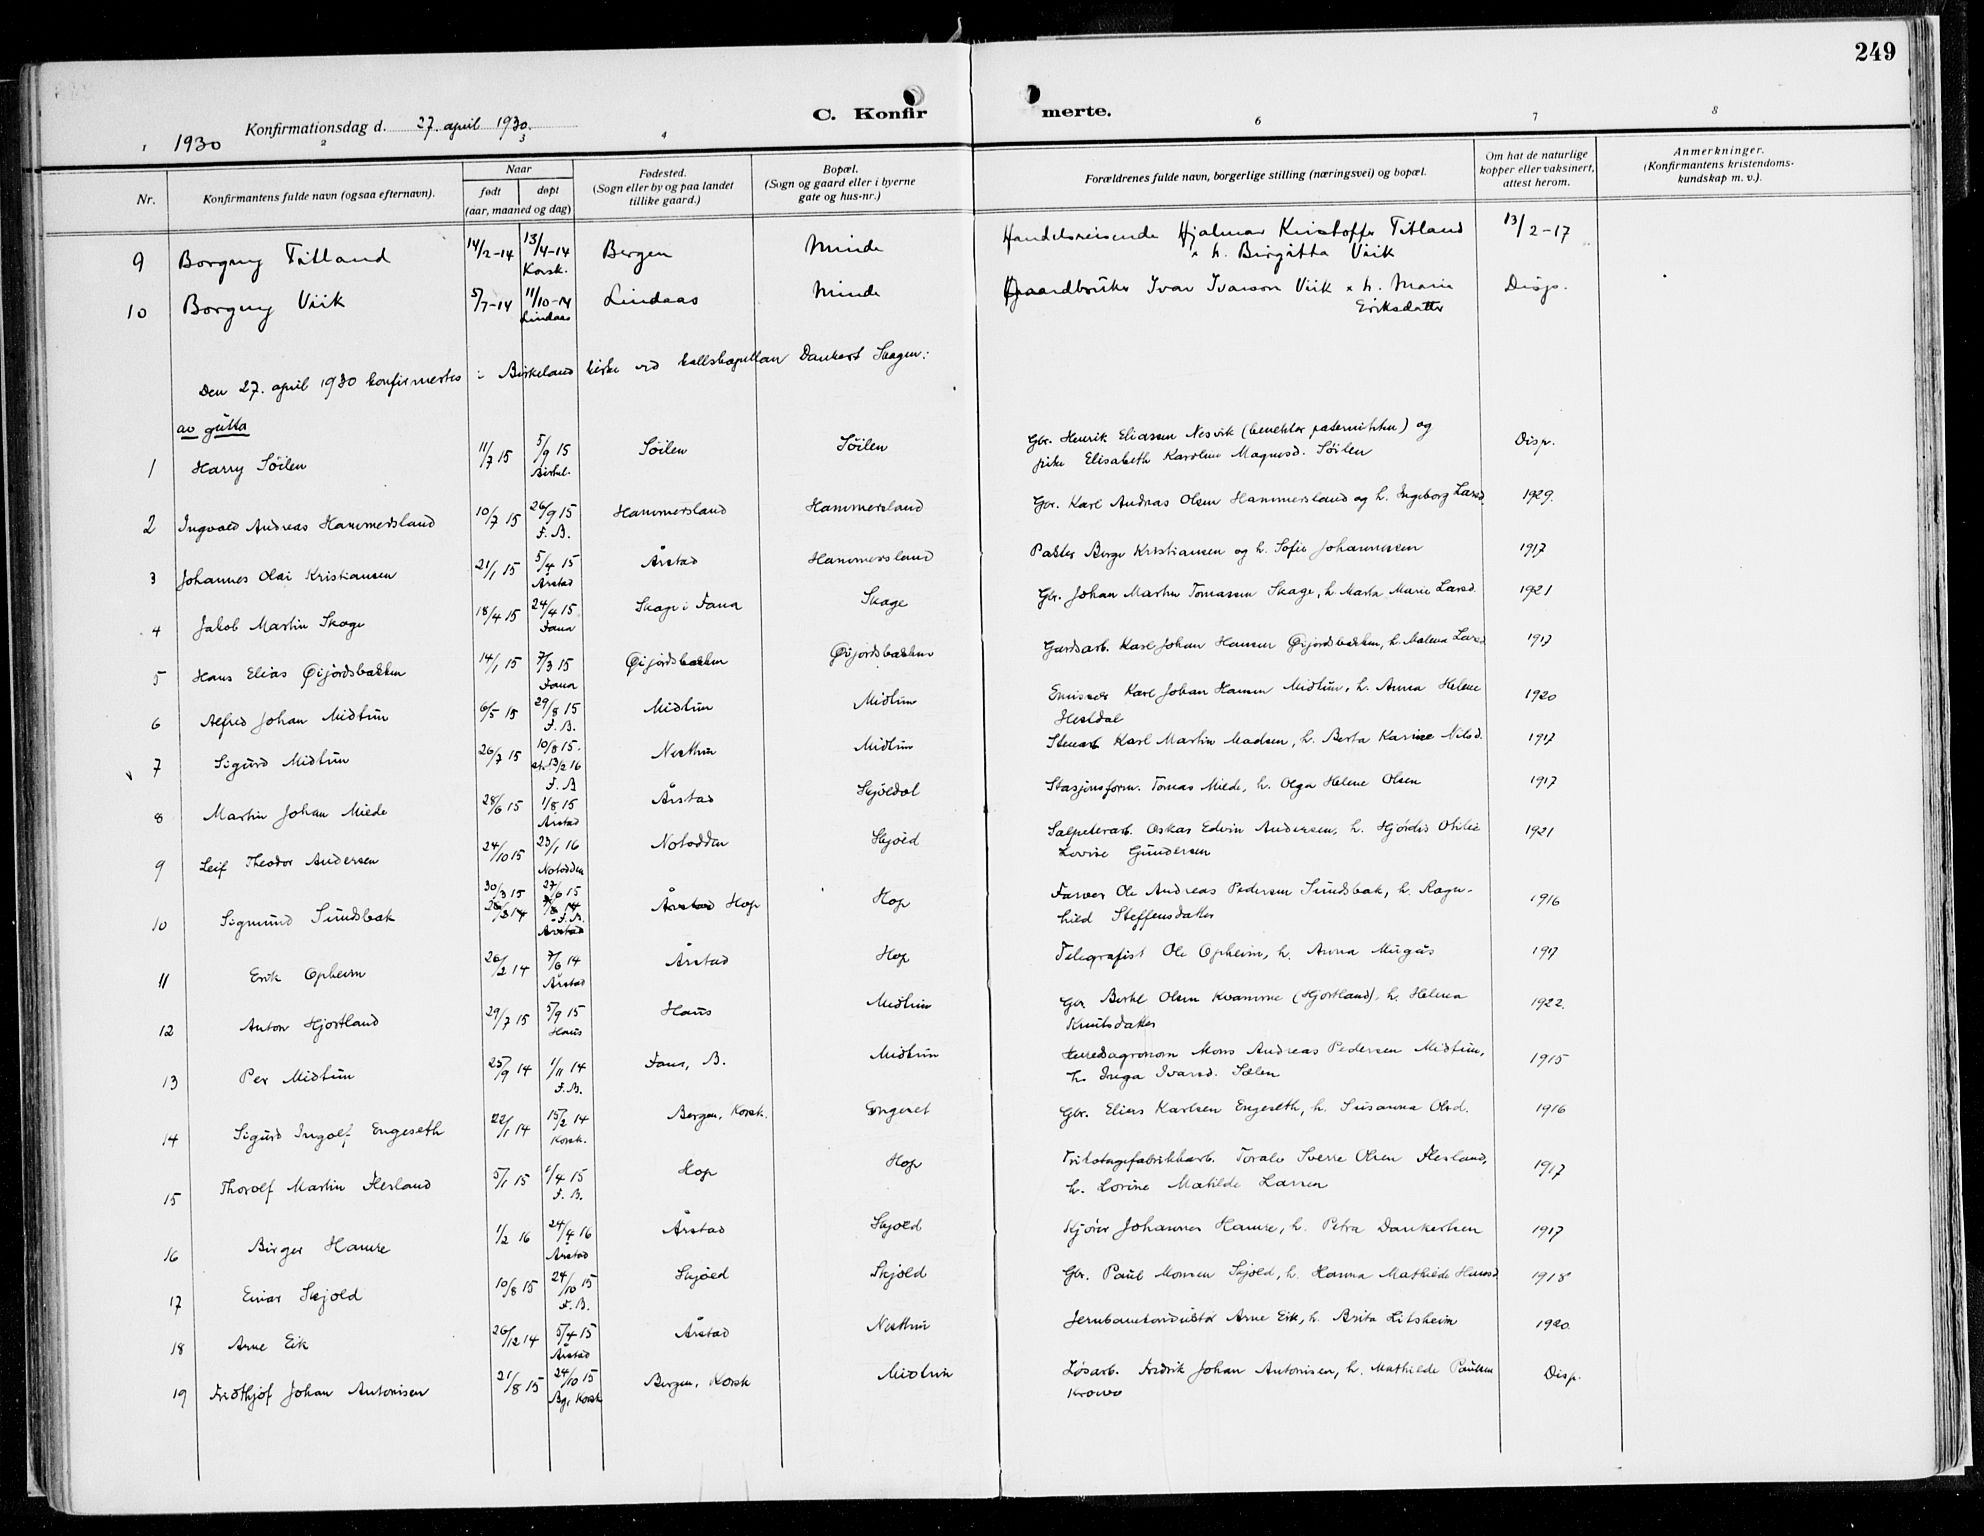 249
C. Konfirmerte.
1930 Konfirmationsdag d. 27. april 1930.
1 2 3 4 6 7 8
Nr. Konfirmantens fulde navn (ogsaa efternavn). Naar født døpt (aar, maaned og dag) Fødested. (Sogn eller by og paa landet tillike gaard.) Bopæl. (Sogn og gaard eller i byerne gate og hus-nr.) Forældrenes fulde navn, borgerlige stilling (næringsvei) og bopæl. Om hat de naturlige kopper eller vaksinert, attest herom. Anmerkninger. (Konfirmantens kristendomskundskap m. v.).
9 Borgny Titland 14/2-14 13/4-14 Korsk. Bergen Minde Handelsreisende Hjalmar Kristoffer Titland 13/2-17
h. Birgitta Viik
10 Borgny Viik 5/7-14 11/10-14 Lindaas Lindaas Minde Gaardbruker Ivar Ivarson Viik h. Marie Disp.
Eriksdatter
Den 27. april 1930 konfirmertes i Birkeland kirke ved kallskapellan Dankert Skagen:
av gutta
1 Harry Söilen 11/7 15 5/9 15 Birkel. Söilen Söilen Gbr. Henrik Eliassen Nesvik og Disp.
pike Elisabeth Karoline Magnusd. Söilen
2 Ingvald Andreas Hammersland 10/7 15 26/9 15 F. B. Hammersland Hammersland Gbr. Karl Andreas Olsen Hammersland og h. Ingeborg Larsd. 1929.
3 Johannes Olai Kristiansen 21/1 15 5/4 15 Årstad Årstad Hammersland Børge Kristiansen og h. Sofie Johannessen 1917
4 Jakob Martin Skage 18/4 15 24/4 15 Fana Skage i Fana Skage Gbr. Johan Martin Tomassen Skage, h. Marta Marie Larsd. 1921
5 Hans Elias Øijordsbakken 14/1 15 7/3 15 Fana Øijordsbakken Øijordsbakken Gardsarb. Karl Johan Hansen Øijordsbakken, h. Malena Larsd. 1917
6 Alfred Johan Midtun 6/5 15 29/8 15 F. B. Midtun Midtun Emissær Karl Johan Hansen Midtun, h. Anna Helene 1920
Hesldal
7 Sigurd Midtun 26/7 15 10/8 15. st. 13/2 16 F. B Nesttun Midtun Stenarb Karl Martin Madsen, h. Berta Karine Nilsd. 1917
8 Martin Johan Milde 28/6 15 1/8 15 Årstad Årstad Skjoldal Stasjonsform. Tomas Milde, h. Olga Helene Olsen 1917
9 Leif Theodor Andersen 24/10 15 23/1 16 Notodden Notodden Skjold Salpeterarb. Oskar Edvin Andersen, h. Hjördis Otilie 1921
Lovise Gundersen
10 Sigmund Sundsbak 30/3 15 27/6 15 F. B. Årstad Årstad Hop Hop Farver Ole Andreas Pedersen Sundsbak, h. Ragn- 1916
hild Steffensdatter
11 Erik Opheim 26/2 14 7/6 14 Årstad Årstad Hop Telegrafist Ole Opheim, h. Anna Mugås 1917
12 Anton Hjortland 29/7 15 5/9 15 Haus Haus Midtun Gbr Bertel Olsen Kvamme (Hjortland), h. Helena 1922.
Knutsdatter
13 Per Midtun 25/9 14 1/11 14 F. B. Fana, B. Midtun Herredsagronom Mons Andreas Pedersen Midtun, 1915
h. Inga Ivarsd. Sælen
14 Sigurd Ingolf Engeseth 22/1 14 15/2 14 Korsk. Bergen, Korsk. Engeset Gbr. Elias Karlsen Engeseth, h. Susanna Olsd. 1916
15 Thorolf Martin Flesland 5/1 15 1/4 15 F. B. Hop Hop Trikotagefabrikkarb. Toralv Sverre Olsen Flesland, 1917
h. Lovise Matilde Larsen
16 Birger Hamre 1/2 16 24/4 16 Årstad Årstad Skjold Kjører Johannes Hamre, h. Petra Dankertsen 1917
17 Einar Skjold 10/8 15 24/10 15 F. B. Skjold Skjold Gbr. Paul Monsen Skjold, h. Hanna Mathilde Hansd. 1918
18 Arne Eik 26/12 14 5/4 15 Årstad Årstad Nesttun Jernbanekonduktör Arne Eik, h. Brita Litsheim 1920.
19 Fridthjof Johan Antonisen 21/8 15 24/10 15 Bg, Korsk Bergen, Korsk Midtun Løsarb. Fredrik Johan Antonisen, h. Mathilde Paulsen Disp.